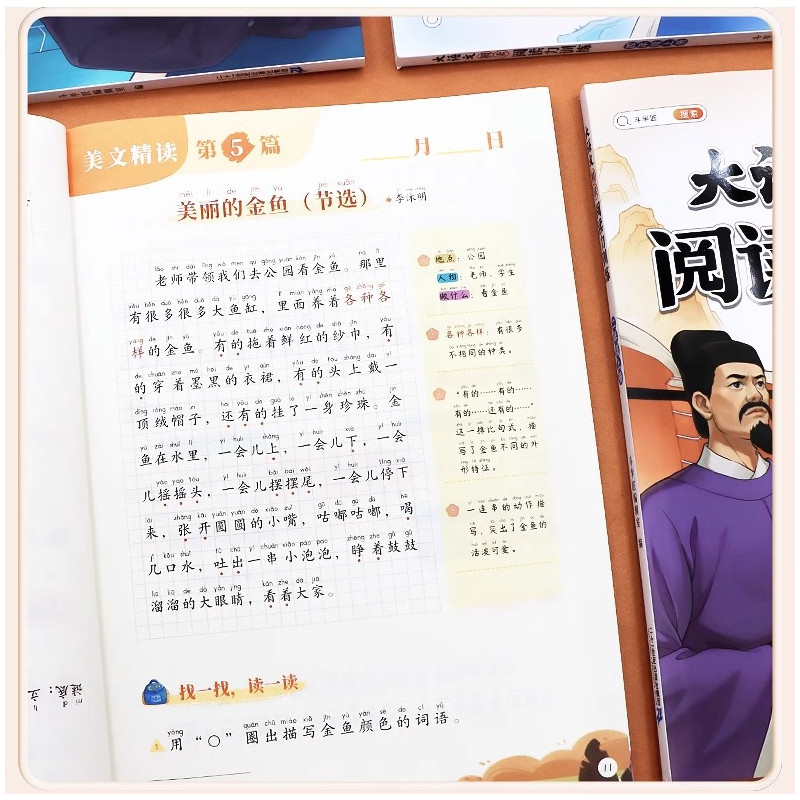 美文精读 第5篇 月 日
měi lì de jīn yú jié xuǎn
美丽的金鱼（节选） 李泳明
lǎo shī dài lǐng wǒ men qù gōng yuán kàn jīn yú nà lǐ
老师带领我们去公园看金鱼。那里
yǒu hěn duō hěn duō dà yú gāng lǐ miàn yǎng zhe gè zhǒng gè
有很多很多大鱼缸，里面养着各种各
yàng de jīn yú yǒu de tuō zhe xiān hóng de shā jīn yǒu
样的金鱼。有的拖着鲜红的纱巾，有
de chuān zhe mò hēi de yī qún yǒu de tóu shàng dài yì
的穿着墨黑的衣裙，有的头上戴一
dǐng róng mào zi hái yǒu de guà le yì shēn zhēn zhū jīn
顶绒帽子，还有的挂了一身珍珠。金
yú zài shuǐ lǐ yí huìr shàng yí huìr xià yí huìr
鱼在水里，一会儿上，一会儿下，一会
yáo yao tóu yí huìr bǎi bai wěi yí huìr tíng xià
儿摇摇头，一会儿摆摆尾，一会儿停下
lái zhāng kāi yuán yuán de xiǎo zuǐ gū dū gū dū hē
来，张开圆圆的小嘴，咕嘟咕嘟，喝
jǐ kǒu shuǐ tǔ chū yí chuàn xiǎo pào pao zhēng zhe gǔ gǔ
几口水，吐出一串小泡泡，睁着鼓鼓
liū liū de dà yǎn jīng kàn zhe dà jiā
溜溜的大眼睛，看着大家。
地点：公园
人物：老师、学生
做什么：看金鱼
各种各样：有很多
不相同的种类。
“有的……有的……
有的……还有的……”
这一排比句式，描
写了金鱼不同的外
形特征。
一连串的动作描
写，突出了金鱼的
活泼可爱。
找一找，读一读
yòng quān chū miáo xiě jīn yú yán sè de cí yǔ
1 用“○”圈出描写金鱼颜色的词语。
11
谜底：
立
搜索
大
阅读